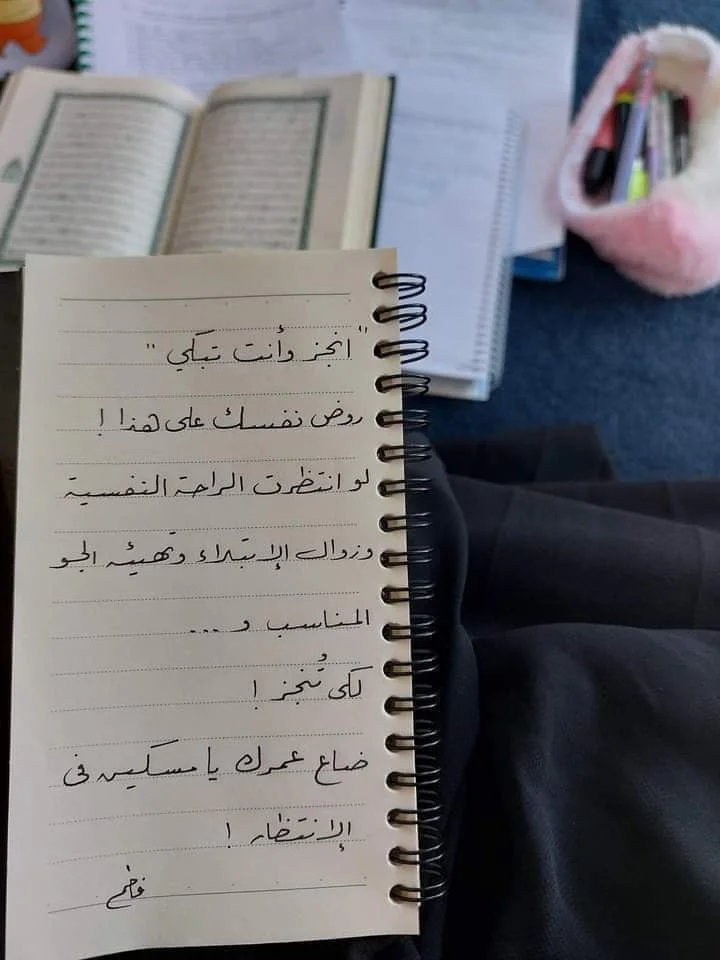 "انجز وأنت تبكي"
روض نفسك على هذا !
لو انتظرت الراحة النفسية
وزوال الإبتلاء وتهيئه الجو
المناسب و ...
لكى تُنجز !
ضاع عمرك يا مسكين فى
الإنتظار !